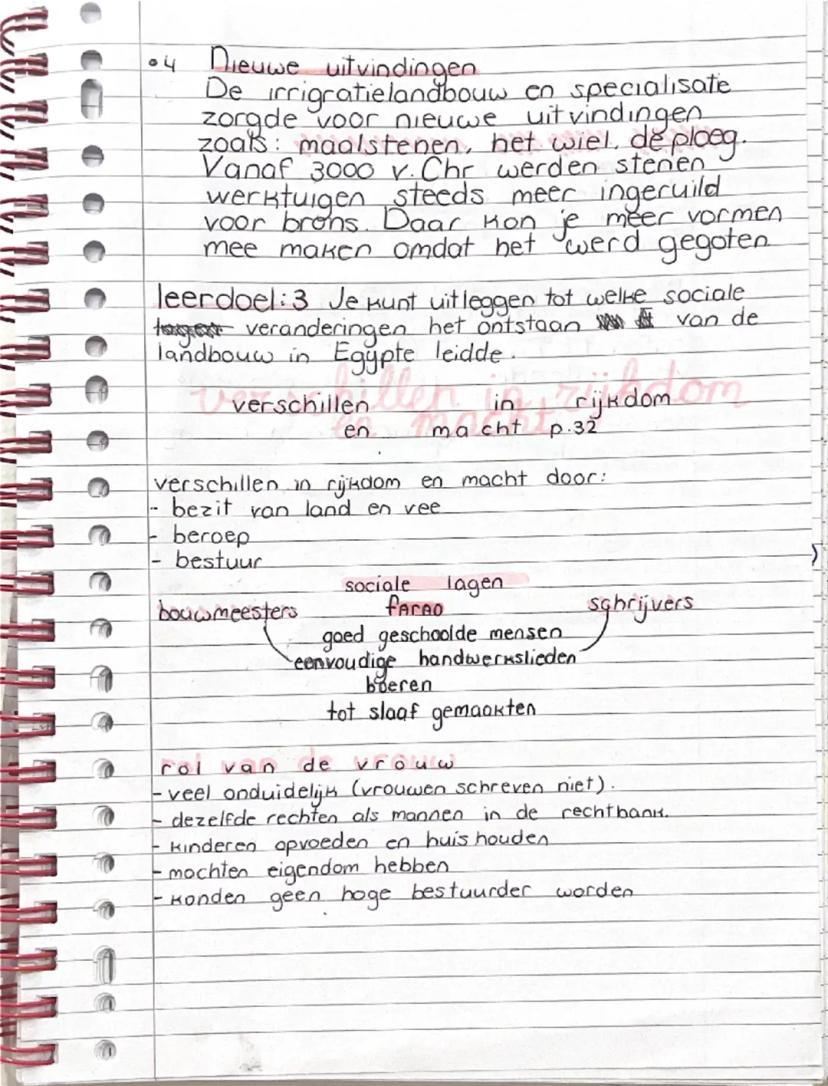 •4 Nieuwe uitvindingen
De irrigratielandbouw en specialisate
zorgde voor nieuwe uitvindingen
zoals: maalstenen, het wiel, de ploeg.
Vanaf 3000 v.Chr werden stenen
werktuigen steeds meer ingeruild
voor brons. Daar kon je meer vormen
mee maken omdat het werd gegoten
leerdoel:3 Je kunt uitleggen tot welke sociale
veranderingen het ontstaan van de
landbouw in Egypte leidde.
verschillen in rijkdom
en macht p.32
verschillen in rijkdom en macht door:
- bezit van land en vee
- beroep
- bestuur
sociale lagen
bouwmeesters farao schrijvers
goed geschoolde mensen
eenvoudige handwerkslieden
boeren
tot slaaf gemaakten
rol van de vrouw
- veel onduidelijk (vrouwen schreven niet).
- dezelfde rechten als mannen in de rechtbank.
- kinderen opvoeden en huishouden
- mochten eigendom hebben
- konden geen hoge bestuurder worden